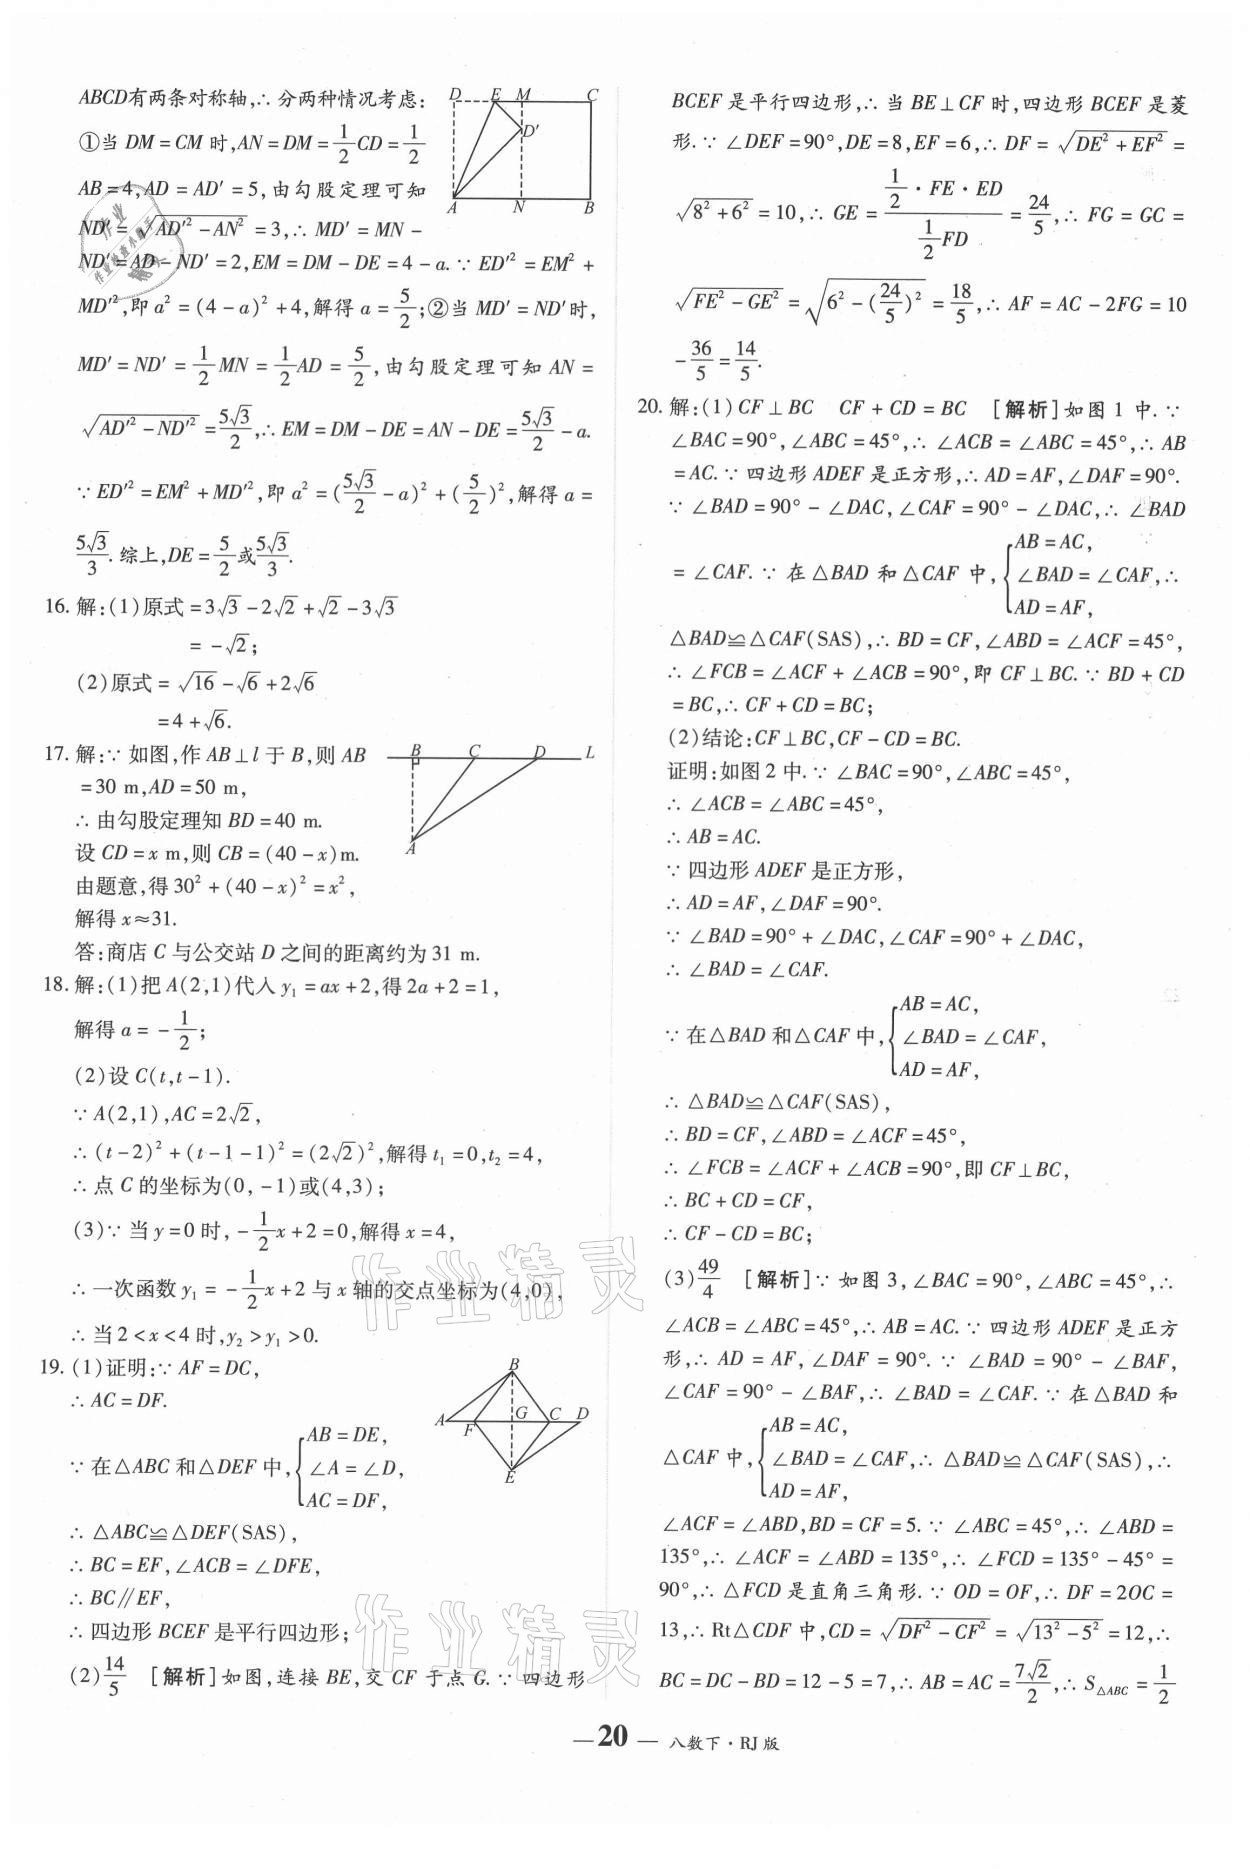 ABCD有两条对称轴,∴分两种情况考虑:
①当 DM=CM 时,AN=DM=1/2CD=1/2
AB=4,AD=AD′=5,由勾股定理可知
ND′=√(AD′²-AN²)=3,∴MD′=MN-
ND′=AD-ND′=2,EM=DM-DE=4-a.∵ED′²=EM²+
MD′²,即 a²=(4-a)²+4,解得 a=5/2;②当 MD′=ND′时,
MD′=ND′=1/2MN=1/2AD=5/2,由勾股定理可知 AN=
√(AD′²-ND′²)=5√3/2,∴EM=DM-DE=AN-DE=5√3/2-a.
∵ED′²=EM²+MD′²,即 a²=(5√3/2-a)²+(5/2)²,解得 a=
5√3/3.综上,DE=5/2或5√3/3.
D E M C
D′
A N B
16.解:(1)原式=3√3-2√2+√2-3√3
=-√2;
(2)原式=√16-√6+2√6
=4+√6.
17.解:∵如图,作 AB⊥l 于 B,则 AB
=30 m,AD=50 m,
∴由勾股定理知 BD=40 m.
设 CD=x m,则 CB=(40-x)m.
由题意,得 30²+(40-x)²=x²,
解得 x≈31.
答:商店 C 与公交站 D 之间的距离约为 31 m.
B C D L
A
18.解:(1)把 A(2,1)代人 y₁=ax+2,得 2a+2=1,
解得 a=-1/2;
(2)设 C(t,t-1).
∵A(2,1),AC=2√2,
∴(t-2)²+(t-1-1)²=(2√2)²,解得 t₁=0,t₂=4,
∴点 C 的坐标为(0,-1)或(4,3);
(3)∵当 y=0 时,-1/2x+2=0,解得 x=4,
∴一次函数 y₁=-1/2x+2 与 x 轴的交点坐标为(4,0),
∴当 2<x<4 时,y₂>y₁>0.
19.(1)证明:∵AF=DC,
∴AC=DF.
∵在△ABC 和△DEF 中,{AB=DE,
∠A=∠D,
AC=DF,
∴△ABC≌△DEF(SAS),
∴BC=EF,∠ACB=∠DFE,
∴BC∥EF,
∴四边形 BCEF 是平行四边形;
(2)14/5 [解析]如图,连接 BE,交 CF 于点 G.∵四边形
B
A F G C D
E
BCEF 是平行四边形,∴当 BE⊥CF 时,四边形 BCEF 是菱
形.∵∠DEF=90°,DE=8,EF=6,∴DF=√(DE²+EF²)=
√(8²+6²)=10,∴GE=(1/2·FE·ED)/(1/2FD)=24/5,∴FG=GC=
√(FE²-GE²)=√(6²-(24/5)²)=18/5,∴AF=AC-2FG=10
-36/5=14/5.
20.解:(1)CF⊥BC CF+CD=BC [解析]如图 1 中.∵
∠BAC=90°,∠ABC=45°,∴∠ACB=∠ABC=45°,∴AB
=AC.∵四边形 ADEF 是正方形,∴AD=AF,∠DAF=90°.
∵∠BAD=90°-∠DAC,∠CAF=90°-∠DAC,∴∠BAD
=∠CAF.∵在△BAD 和△CAF 中,{AB=AC,
∠BAD=∠CAF,∴
AD=AF,
△BAD≌△CAF(SAS),∴BD=CF,∠ABD=∠ACF=45°,
∴∠FCB=∠ACF+∠ACB=90°,即 CF⊥BC.∵BD+CD
=BC,∴CF+CD=BC;
(2)结论:CF⊥BC,CF-CD=BC.
证明:如图 2 中.∵∠BAC=90°,∠ABC=45°,
∴∠ACB=∠ABC=45°,
∴AB=AC.
∵四边形 ADEF 是正方形,
∴AD=AF,∠DAF=90°.
∵∠BAD=90°+∠DAC,∠CAF=90°+∠DAC,
∴∠BAD=∠CAF.
∵在△BAD 和△CAF 中,{AB=AC,
∠BAD=∠CAF,
AD=AF,
∴△BAD≌△CAF(SAS),
∴BD=CF,∠ABD=∠ACF=45°,
∴∠FCB=∠ACF+∠ACB=90°,即 CF⊥BC,
∴BC+CD=CF,
∴CF-CD=BC;
(3)49/4 [解析]∵如图 3,∠BAC=90°,∠ABC=45°,∴
∠ACB=∠ABC=45°,∴AB=AC.∵四边形 ADEF 是正方
形,∴AD=AF,∠DAF=90°.∵∠BAD=90°-∠BAF,
∠CAF=90°-∠BAF,∴∠BAD=∠CAF.∵在△BAD 和
△CAF 中,{AB=AC,
∠BAD=∠CAF,∴△BAD≌△CAF(SAS),∴
AD=AF,
∠ACF=∠ABD,BD=CF=5.∵∠ABC=45°,∴∠ABD=
135°,∴∠ACF=∠ABD=135°,∴∠FCD=135°-45°=
90°,∴△FCD 是直角三角形.∵OD=OF,∴DF=2OC=
13,∴Rt△CDF 中,CD=√(DF²-CF²)=√(13²-5²)=12,∴
BC=DC-BD=12-5=7,∴AB=AC=7√2/2,∴S△ABC=1/2
—20— 八数下·RJ 版
作业精灵
作业精灵